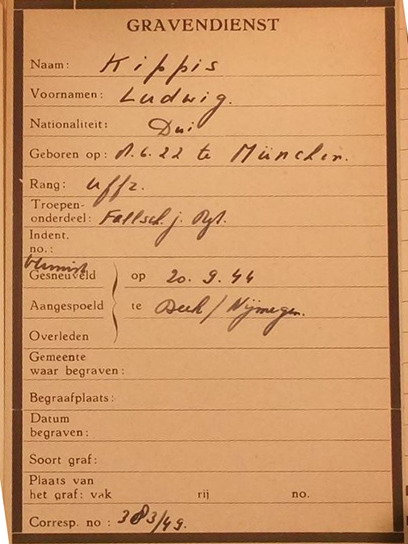 GRAVENDIENST
Naam: Kippis
Voornamen: Ludwig.
Nationaliteit: Dui
Geboren op: 8.6.22 te München.
Rang: Uffz.
Troepen-
onderdeel: Fallsch. j. Rgt.
Indent.
no.:
Vermist
Gesneuveld op 20.9.44
Aangespoeld te Beek / Nijmegen.
Overleden
Gemeente
waar begraven:
Begraafplaats:
Datum
begraven:
Soort graf:
Plaats van
het graf: vak rij no.
Corresp. no: 383/49.